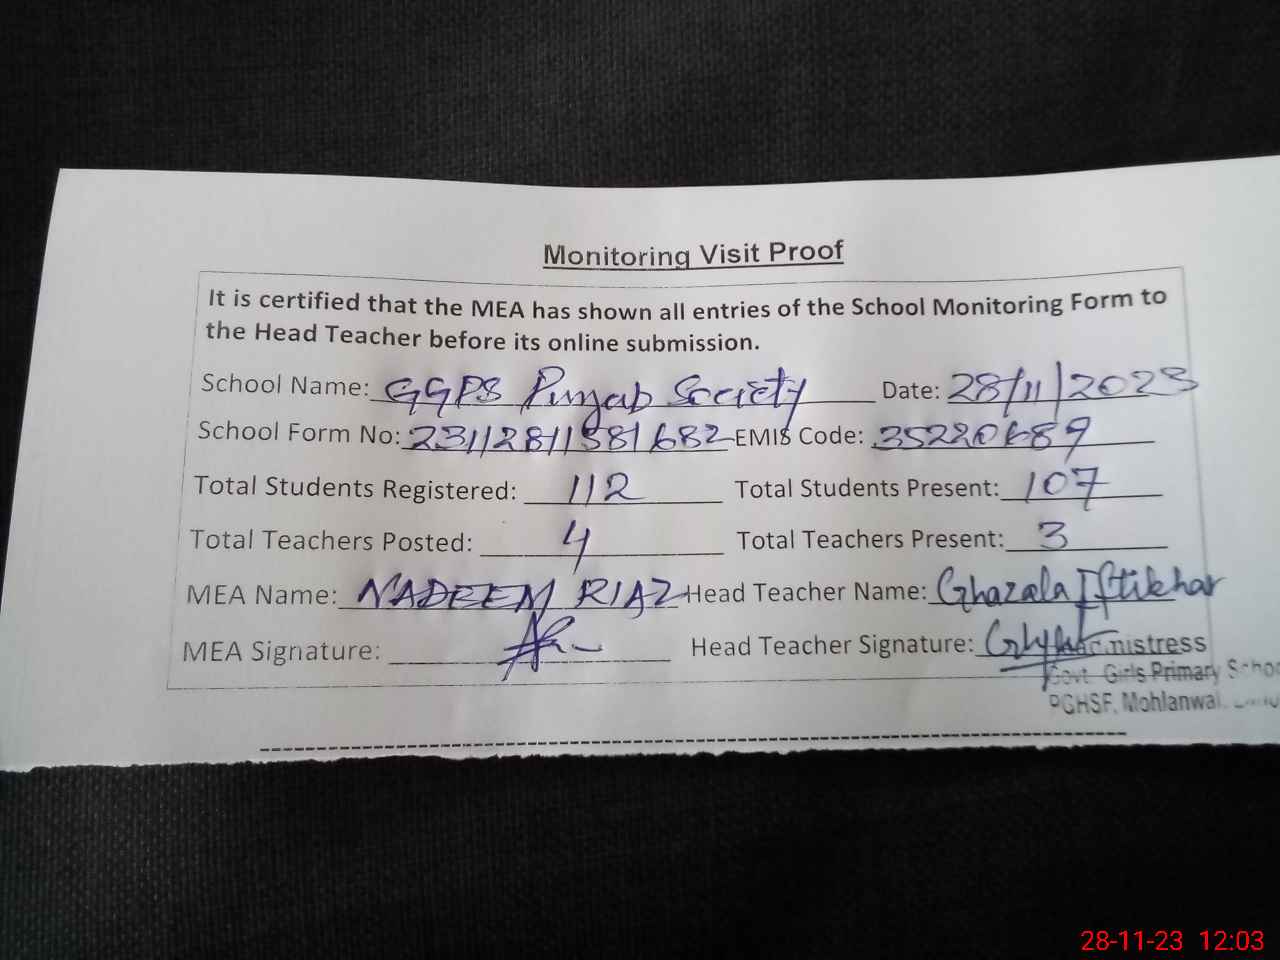 Monitoring Visit Proof
It is certified that the MEA has shown all entries of the School Monitoring Form to
the Head Teacher before its online submission.
School Name: GGPS Punjab Society Date: 28/11/2023
School Form No: 231128111581682 EMIS Code: 35220689
Total Students Registered: 112 Total Students Present: 107
Total Teachers Posted: 4 Total Teachers Present: 3
MEA Name: NADEEM RIAZ Head Teacher Name: Ghazala Iftikhar
MEA Signature: Head Teacher Signature:
Govt. Girls Primary School
PGHSF, Mohlanwal,
28-11-23 12:03